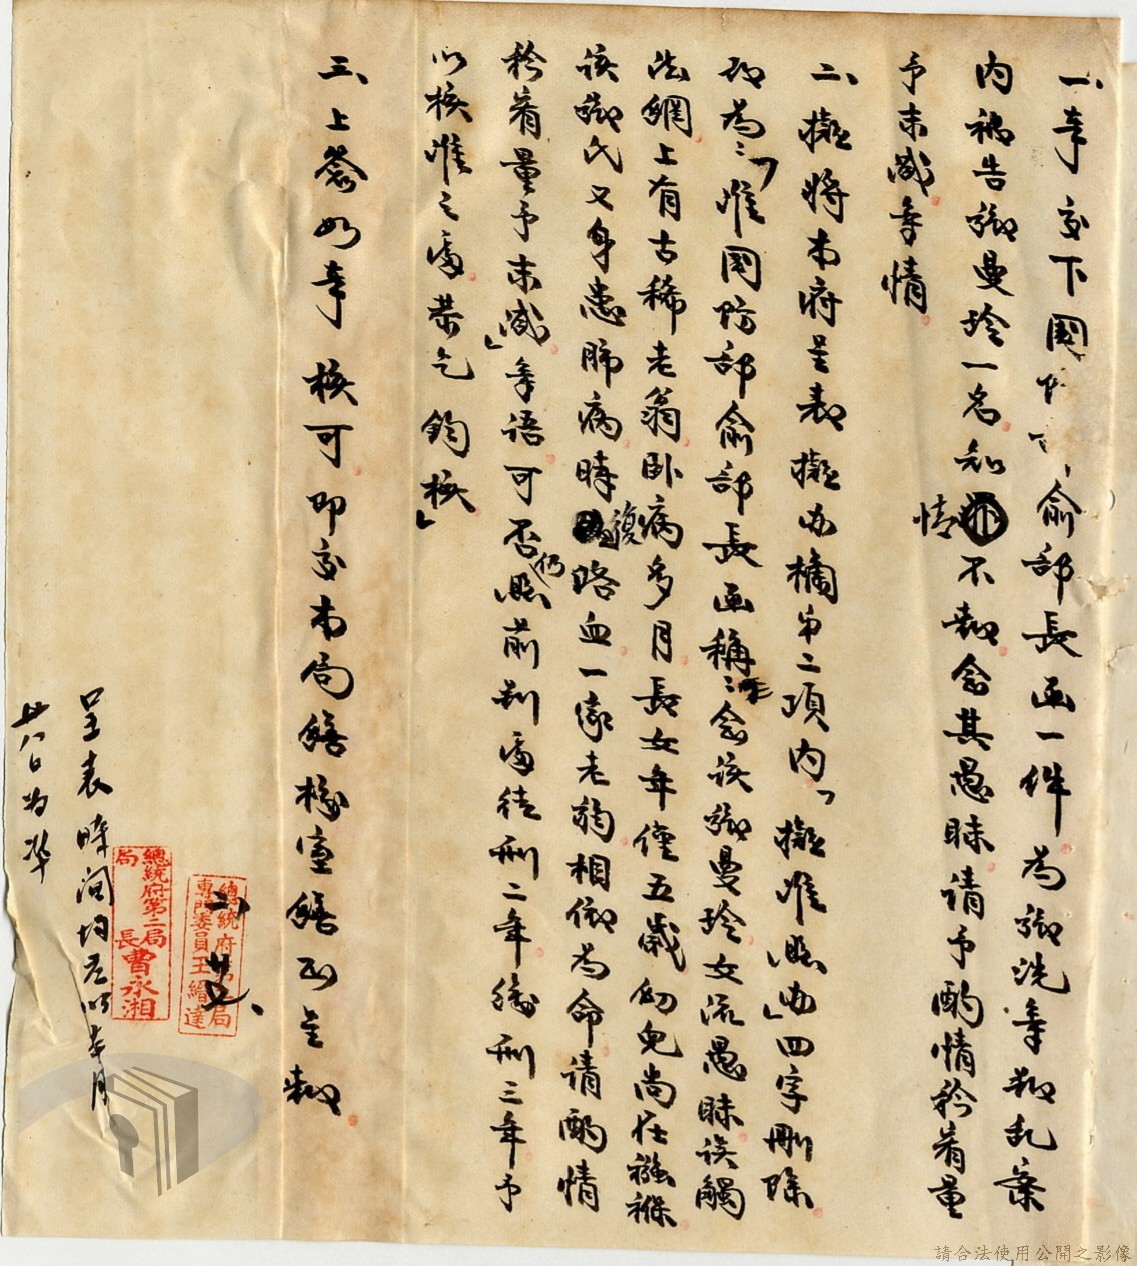 一、奉交下國防部俞部長函一件為鄒洗章叛乱案
內被告鄒曼玲一名知情不報念其愚昧請予酌情矜宥量
予末減等情
二、擬將本府呈表擬办欄第二項內「擬准照办」四字刪除
改為：「准國防部俞部長函稱：念該鄒曼玲女流愚昧誤觸
法網上有古稀老翁卧病多月長女年僅五歲幼兒尚在襁褓
該鄒氏又身患肺病時復咯血一家老弱相依為命請酌情
矜宥量予末減」等語可否仍照前判處徒刑二年緩刑三年予
以核准之處恭乞 鈞核」
三、上簽如奉 核可即交本局繕校室繕正呈報
呈表時間均應以本月
廿八日為準
總統府第二局
局長曹承湘
總統府第二局
專門委員王縉達
二、廿八、
請合法使用公開之影像